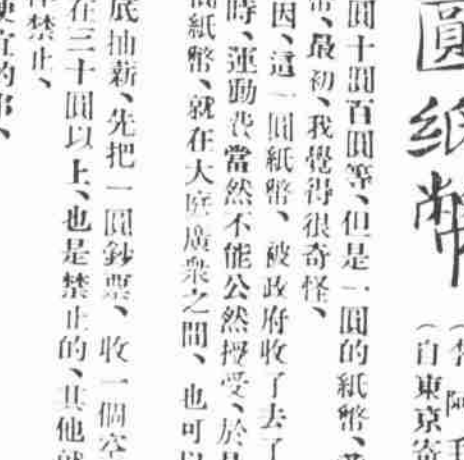 圓紙幣
李阿毛
(自東京寄
圓十圓百圓等、但是一圓的紙幣、
幣、最初、我覺得很奇怪、
因、這一圓紙幣、被政府收了去了
時、運動費當然不能公然授受、於是
圓紙幣、就在大庭廣衆之間、也可以
底抽薪、先把一圓鈔票、收一個空
在三十圓以上、也是禁止的、其他
禁止、
便宜的